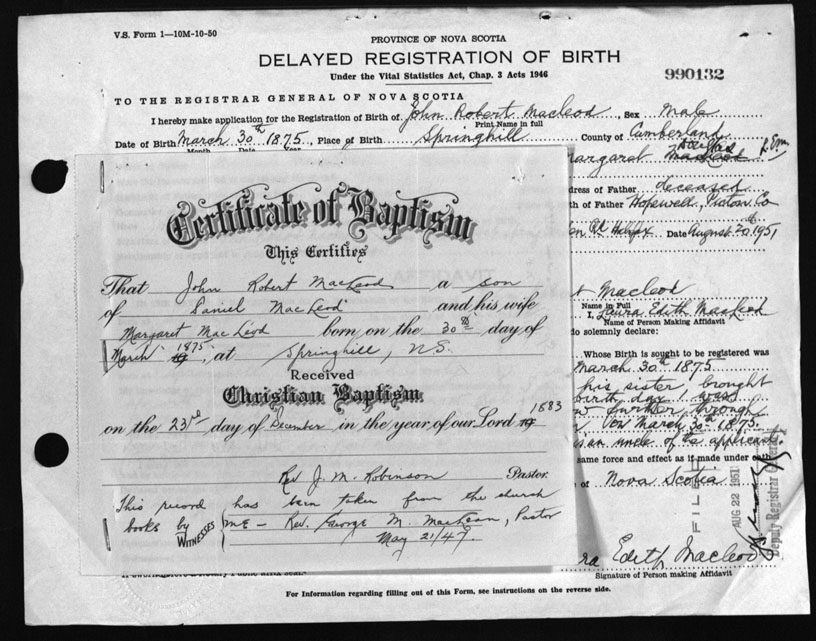 V.S. Form 1—10M-10-50
PROVINCE OF NOVA SCOTIA
DELAYED REGISTRATION OF BIRTH
Under the Vital Statistics Act, Chap. 3 Acts 1946
990132
TO THE REGISTRAR GENERAL OF NOVA SCOTIA
I hereby make application for the Registration of Birth of John Robert Macleod, Sex Male
Print Name in full
Date of Birth March 30th 1875, Place of Birth Springhill County of Cumberland
Month Date Year
Douglas
argaret Macleod
ress of Father deceased
th of Father Hopewell, Pictou Co
Date August 20th 1951
Macleod
Name in Full
I, Laura Edith MacLeod
Name of Person Making Affidavit
do solemnly declare:
Whose Birth is sought to be registered was
March 30th 1875
his sister, brought
birth day I was
further, through
March 30th 1875
is an uncle of the applicant
same force and effect as if made under
of Nova Scotia
FILED
AUG 22 1951
Deputy Registrar General
Edith Macleod
Signature of Person making Affidavit
For Information regarding filling out of this Form, see instructions on the reverse side.
Certificate of Baptism
This Certifies
That John Robert MacLeod a son
of Daniel MacLeod and his wife
Margaret MacLeod born on the 30th day of
March 1875, at Springhill, N.S.
Received
Christian Baptism
on the 23rd day of December in the year of our Lord 19 1883
Rev J. M. Robinson Pastor.
This record has been taken from the church
books by me – Rev. George M. MacLean, Pastor
WITNESSES
May 21/47.